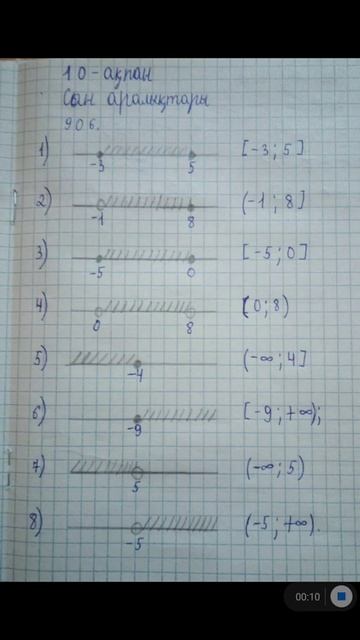 10-ақпан
Сан аралықтары
906.
1) -3 5 [-3; 5]
2) -1 8 (-1; 8]
3) -5 0 [-5; 0]
4) 0 8 (0; 8)
5) -4 (-∞; 4]
6) -9 [-9; +∞);
7) 5 (-∞; 5)
8) -5 (-5; +∞).
00:10